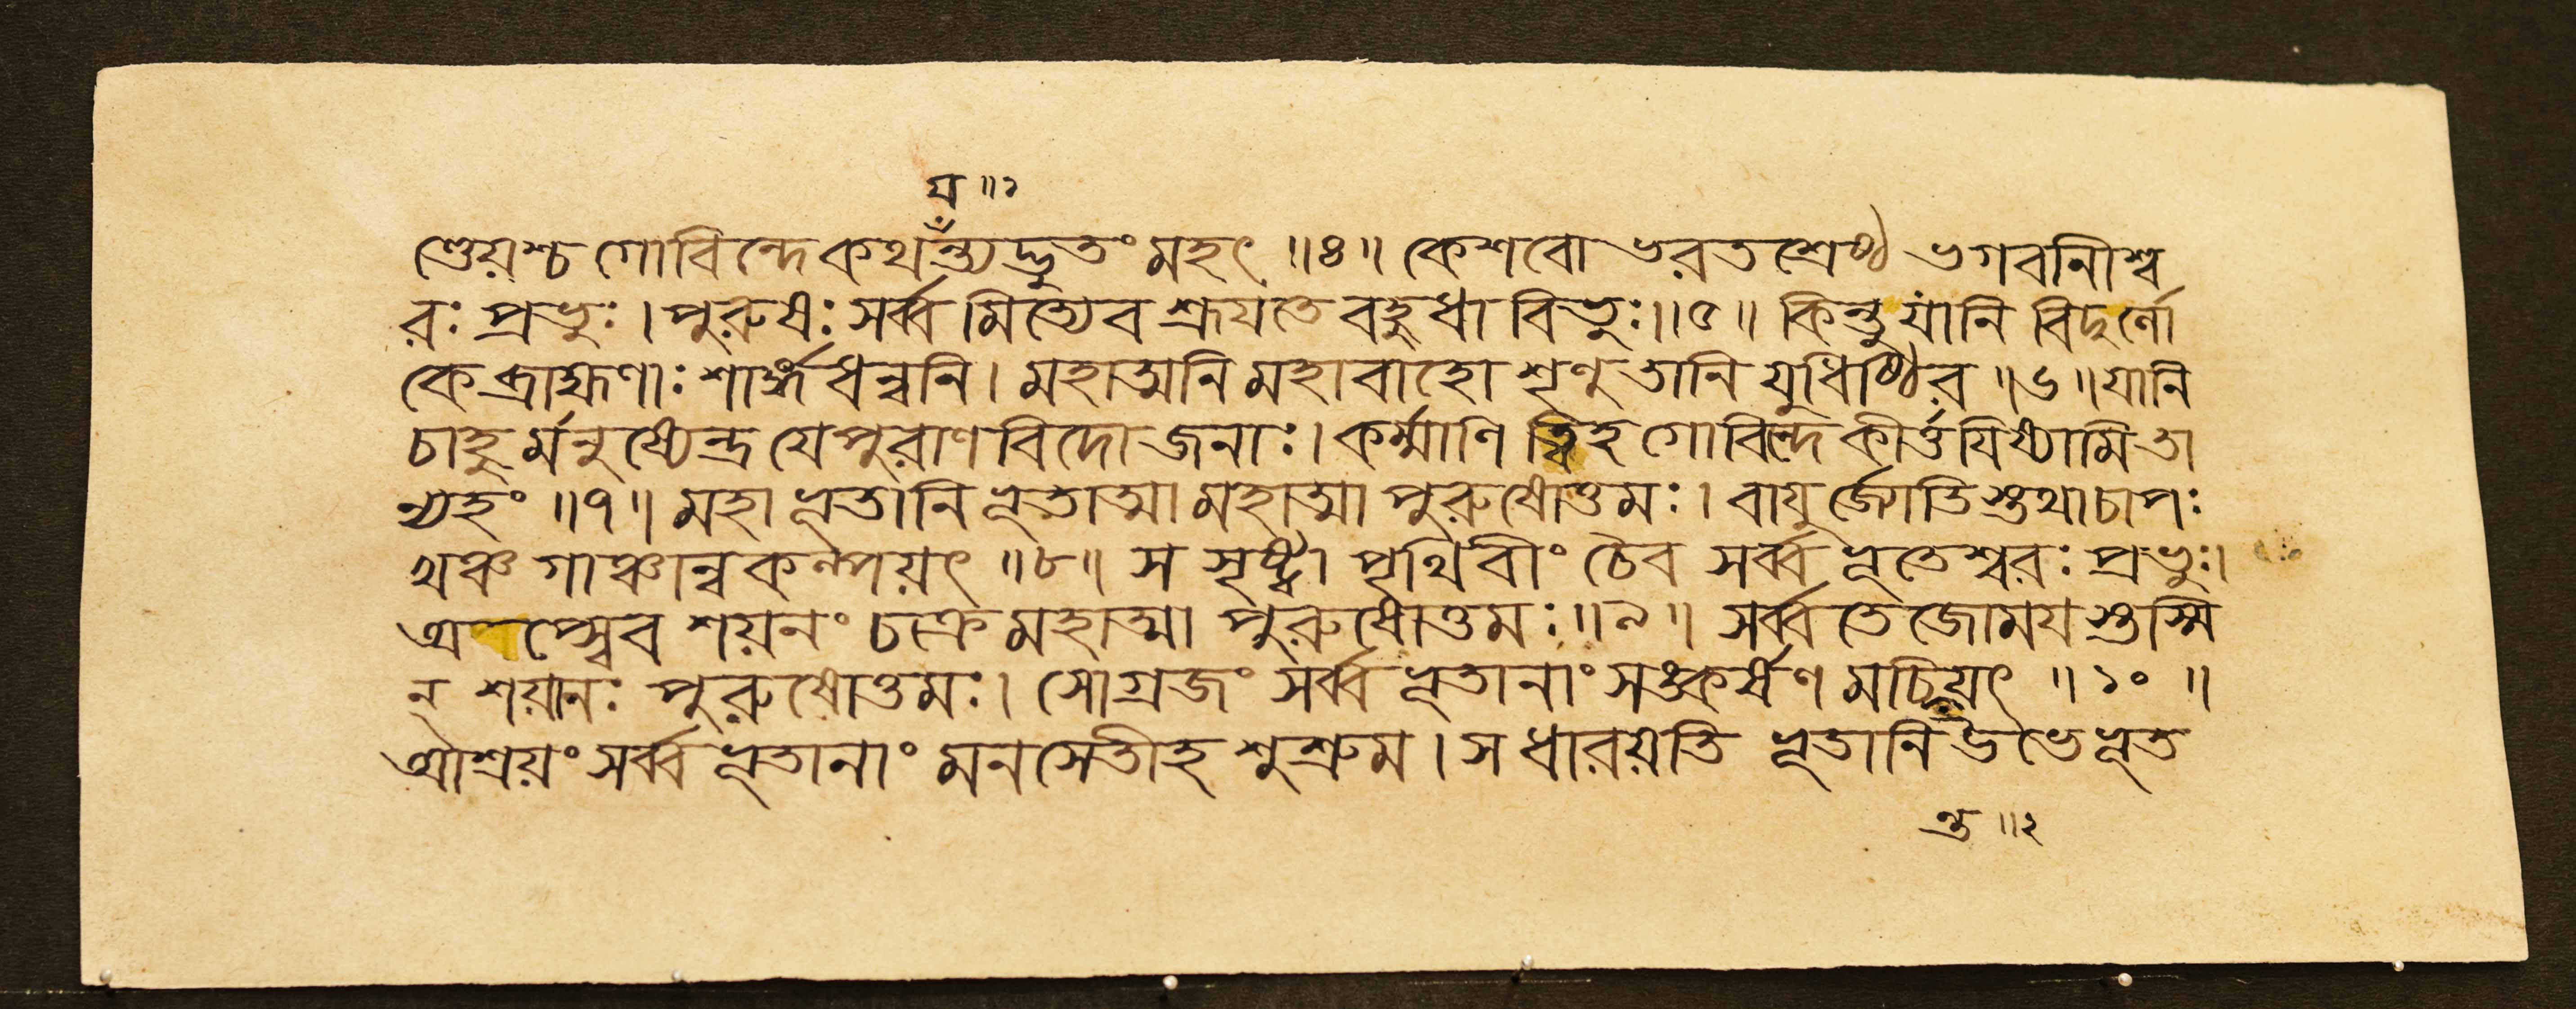 য ॥ ১
ণ্ডেয়শ্চ গোবিন্দে কথন্ত্যদ্ভুতং মহৎ ॥ ৪ ॥ কেশবো ভরতশ্রেষ্ঠ ভগবানীশ্ব
রঃ প্রভুঃ । পুরুষঃ সর্ব্ব মিত্যেব শ্রূযতে বহুধা বিভুঃ ॥ ৫ ॥ কিন্তু যানি বিদুর্লো
কে ব্রাহ্মণাঃ শার্ঙ্গধন্বনি । মহাত্মনি মহাবাহো শৃণু তানি যুধিষ্ঠির ॥ ৬ ॥ যানি
চাহুর্মনুষ্যেন্দ্র যে পুরাণবিদো জনাঃ । কর্ম্মাণি ত্বিহ গোবিন্দে কীর্ত্তযিষ্যামি তা
ন্যহং ॥ ৭ ॥ মহাভূতানি ভূতাত্মা মহাত্মা পুরুষোত্তমঃ । বাযুর্জ্যোতিস্তথা চাপঃ
খঞ্চ গাঞ্চান্বকল্পয়ৎ ॥ ৮ ॥ স সৃষ্ট্বা পৃথিবীং চৈব সর্ব্বভূতেশ্বরঃ প্রভুঃ ।
অপ্স্বেব শয়নং চক্রে মহাত্মা পুরুষোত্তমঃ ॥ ৯ ॥ সর্ব্বতেজোময স্তস্মি
ন্ শয়ানঃ পুরুষোত্তমঃ । সোগ্রজং সর্ব্বভূতানাং সঙ্কর্ষণ মচিন্তয়ৎ ॥ ১০ ॥
আশ্রয়ং সর্ব্বভূতানাং মনসেতীহ শুশ্রুম । স ধারয়তি ভূতানি উভে ভূত
ন্ত ॥ ২